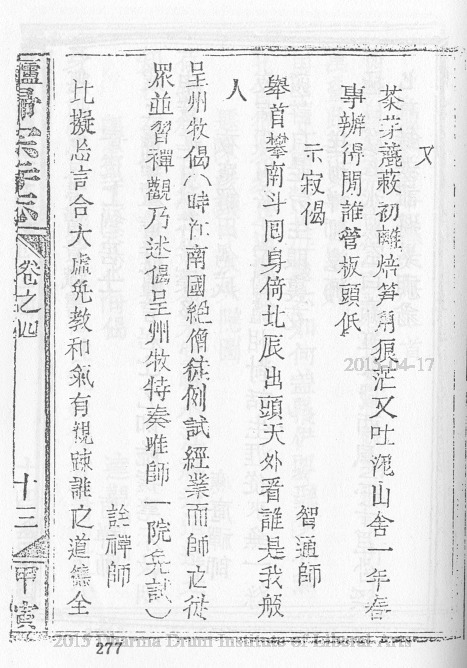 又
茶芽蔍蔌初離焙笋角狼茫又吐泥山舍一年春
事辦得閒誰管板頭低
示寂偈
智通師
舉首攀南斗囘身倚北辰出頭天外看誰是我般
人
呈州牧偈(時江南國絕僧徒例試經業而師之徒
眾並習禪觀乃述偈呈州牧特奏唯師一院免試)
詮禪師
比擬忘言合太虛免教和氣有親踈誰之道德全
卷之四
十三
甲寅
2013-04-17
277
2013 Dharma Drum Institute of Liberal Arts